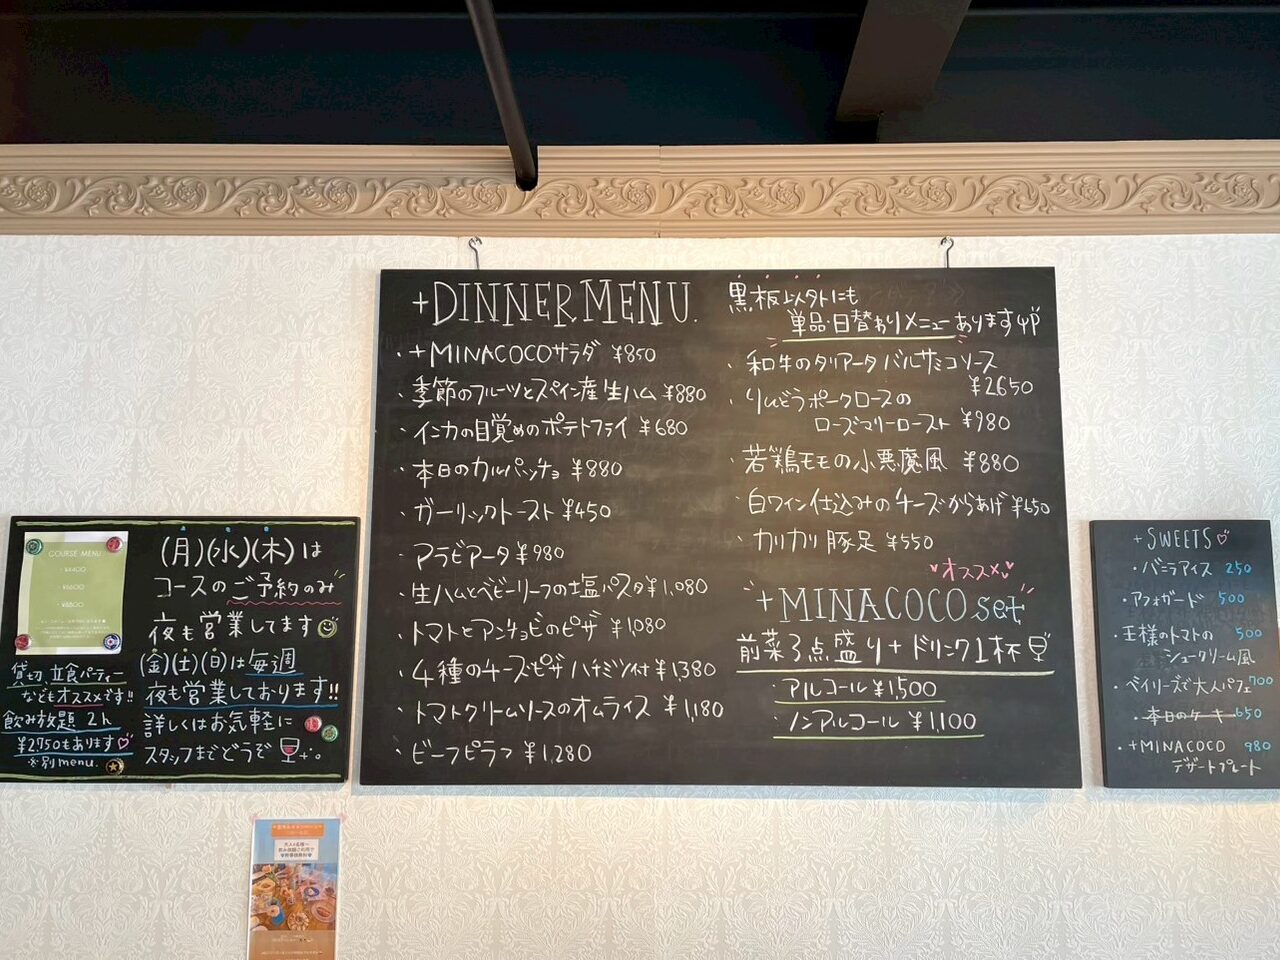 +DINNER MENU.
・+MINACOCOサラダ ¥850
・季節のフルーツとスペイン産生ハム ¥880
・インカの目覚めのポテトフライ ¥680
・本日のカルパッチョ ¥880
・ガーリックトースト ¥450
・アラビアータ ¥980
・生ハムとベビーリーフの塩パスタ ¥1,080
・トマトとアンチョビのピザ ¥1,080
・4種のチーズピザ ハチミツ付 ¥1,380
・トマトクリームソースのオムライス ¥1,180
・ビーフピラフ ¥1,280
黒板以外にも
単品・日替わりメニューあります
・和牛のタリアータ バルサミコソース
¥2650
・りんどうポークロースの
ローズマリーロースト ¥980
・若鶏モモの小悪魔風 ¥880
・白ワイン仕込みのチーズからあげ ¥650
・カリカリ豚足 ¥550
オススメ
+MINACOCO set
前菜3点盛り+ドリンク1杯
・アルコール ¥1,500
・ノンアルコール ¥1,100
COURSE MENU
¥4400
¥6600
¥8800
(月)(水)(木)は
コースのご予約のみ
夜も営業してます
(金)(土)(日)は毎週
夜も営業しております!!
詳しくはお気軽に
スタッフまでどうぞ
貸切、立食パーティー
などもオススメです!!
飲み放題 2h
¥2750もあります
※別menu.
+SWEETS
・バニラアイス 250
・アフォガード 500
・王様のトマトの 500
シュークリーム風
・ベイリーズで大人パフェ 700
・本日のケーキ 650
・+MINACOCO 980
デザートプレート